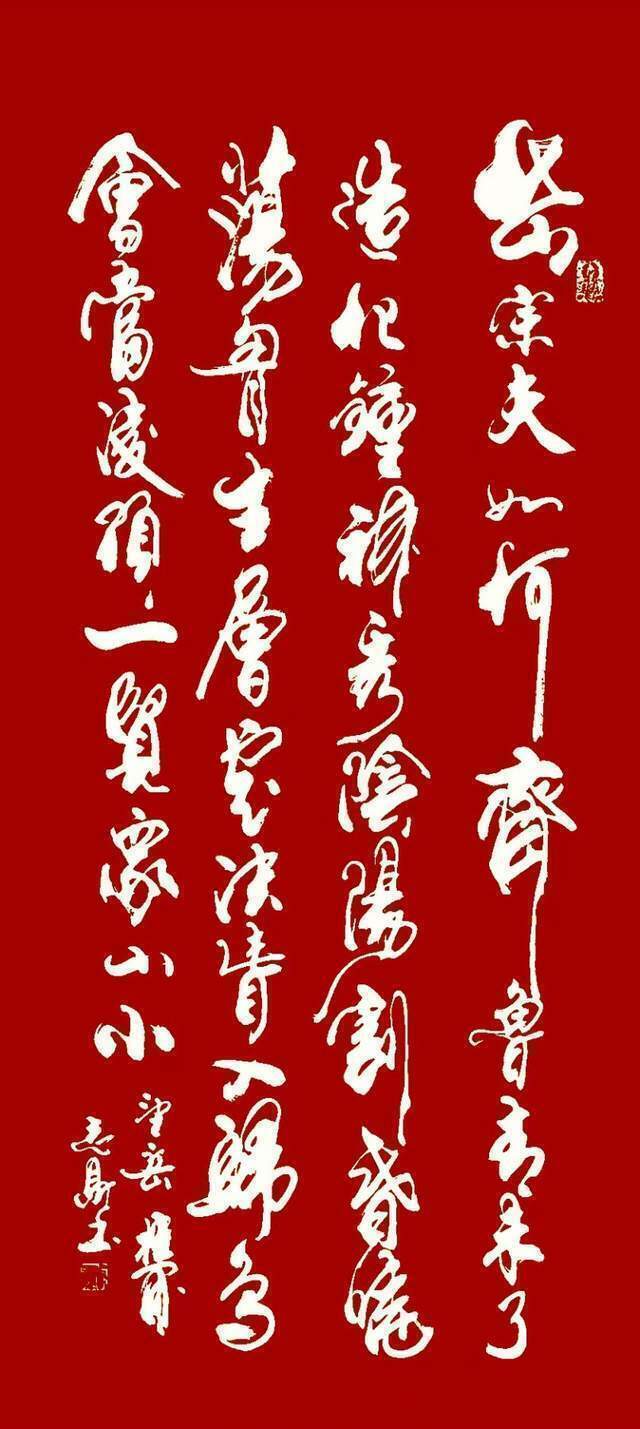 岱宗夫如何齊魯青未了
造化鍾神秀陰陽割昏曉
蕩胷生層雲決眥入歸鳥
會當凌頂一覽眾山小
望岳